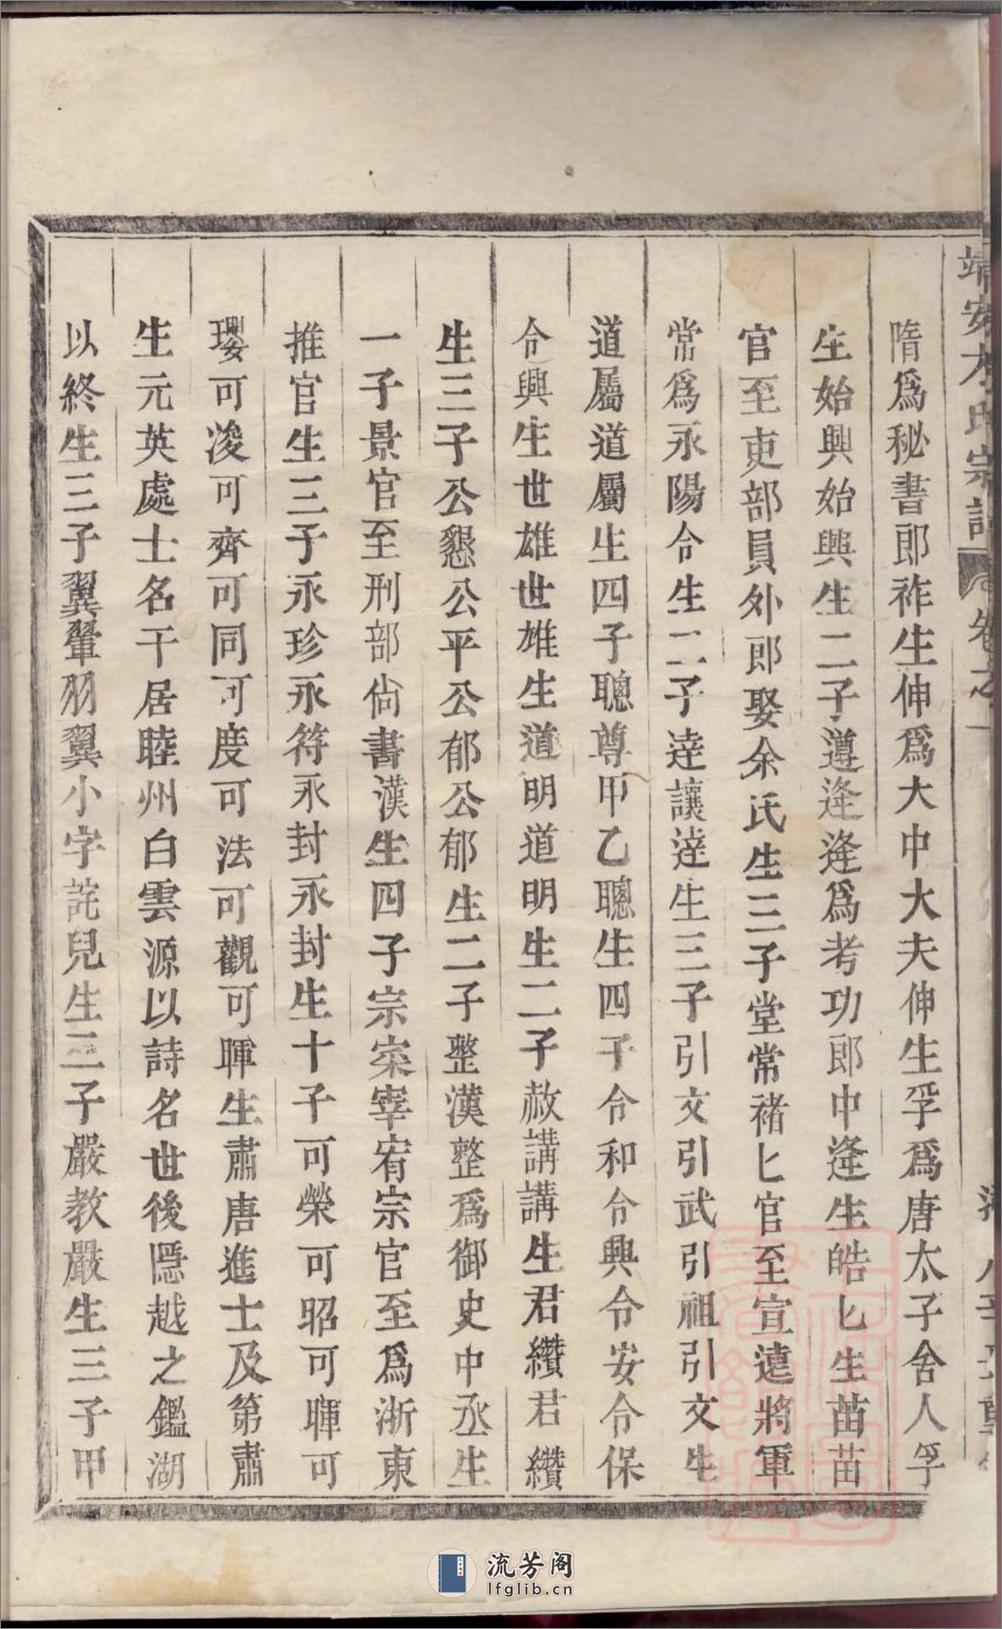 隋爲秘書郎祚生伸爲大中大夫伸生孚爲唐太子舍人孚
生始興始興生二子遵逢逢爲考功郎中逢生皓匕生苗苗
官至吏部員外郎娶余氏生三子堂常褚匕官至宣遠將軍
常爲永陽令生二子逹讓逹生三子引文引武引祖引文生
道屬道屬生四子聰尊甲乙聰生四子令和令興令安令保
令興生世雄世雄生道明道明生二子赦講講生君纘君纘
生三子公懇公平公郁公郁生二子整漢整爲御史中丞生
一子景官至刑部尙書漢生四子宗寀宰宥宗官至爲浙東
推官生三子永珍永符永封永封生十子可榮可昭可暉可
瓔可浚可齊可同可度可法可觀可暉生肅唐進士及第肅
生元英處士名干居睦州白雲源以詩名世後隱越之鑑湖
以終生三子翼鞏羽翼小字詫兒生三子嚴教嚴生三子甲
氏宗譜 卷之一
流芳阁
lfglib.cn